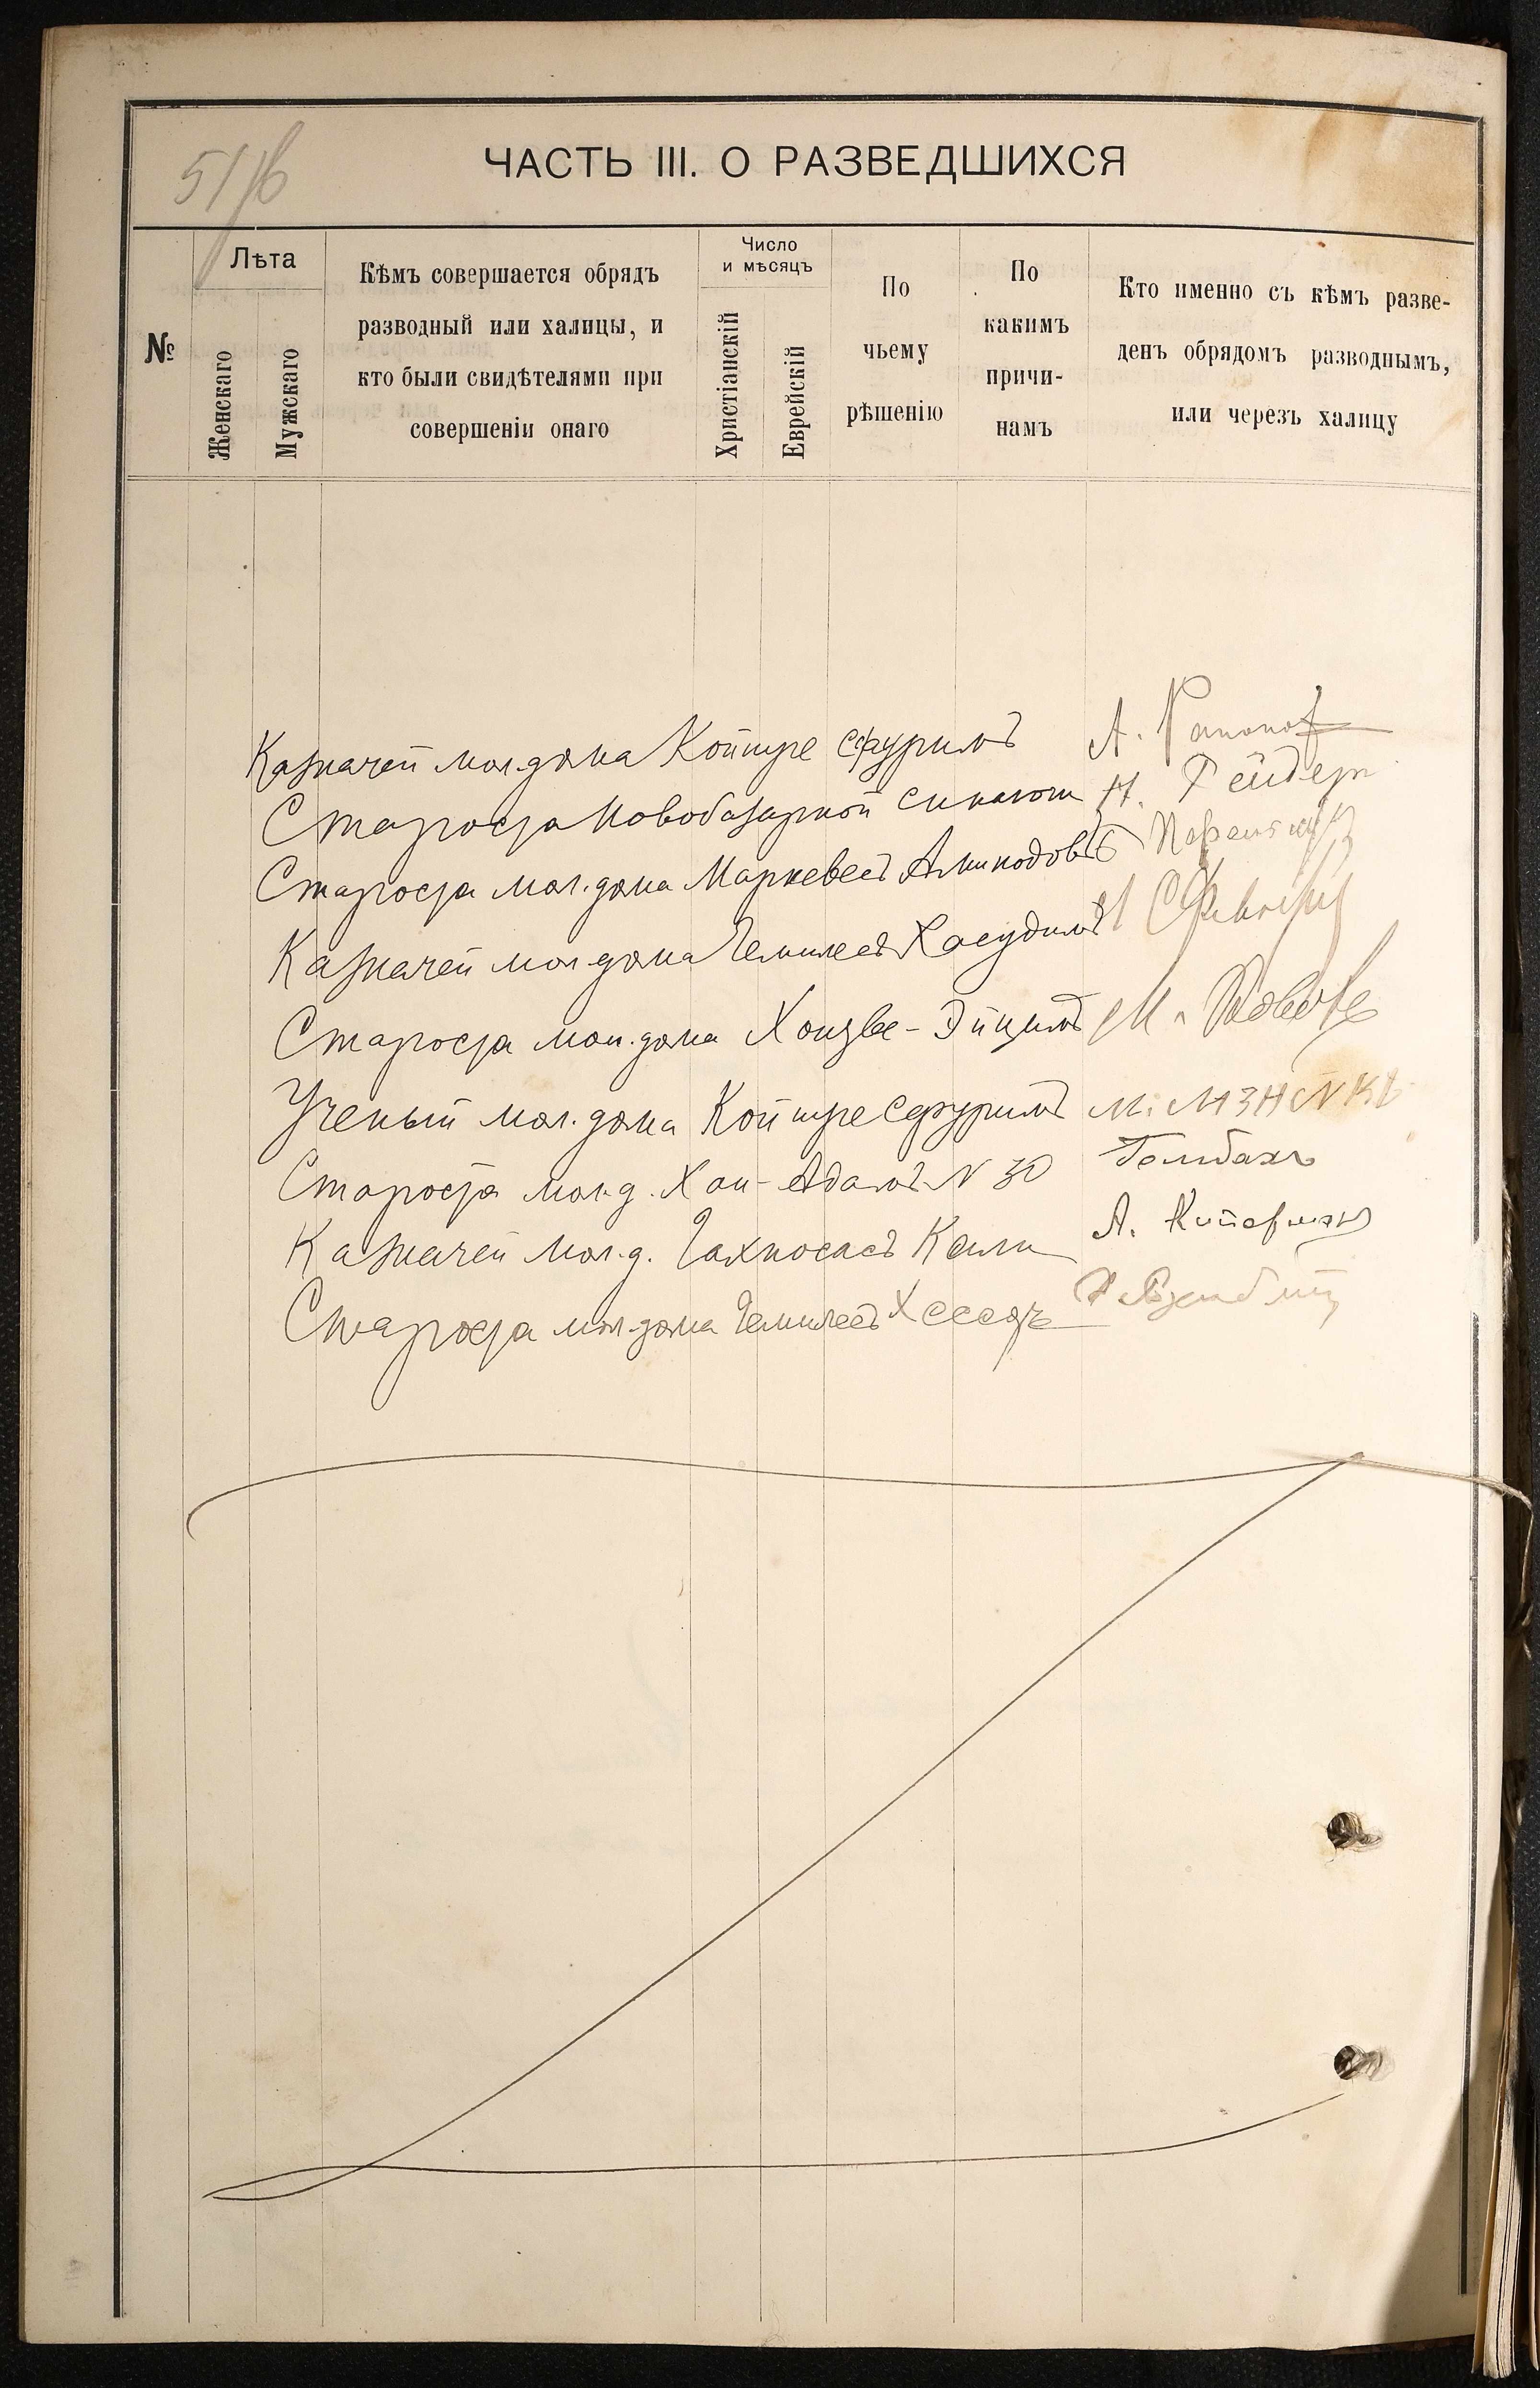 ЧАСТЬ III. О РАЗВЕДШИХСЯ
№
Лѣта
Женскаго
Мужскаго
Кѣмъ совершается обрядъ
разводный или халицы, и
кто были свидѣтелями при
совершеніи онаго
Число
и мѣсяцъ
Христіанскій
Еврейскій
По
чьему
рѣшенію
По
какимъ
причи-
намъ
Кто именно съ кѣмъ разве-
денъ обрядомъ разводнымъ,
или черезъ халицу
Казначей мол. дома Койшре Сфуримъ А.
Староста Новобазарной синагоги Н. Рейдер
Староста мол. дома Маркевес Аминодовъ
Казначей мол. дома Гемилесъ Хасудимъ
Староста мол. дома Хоизве-Эйцимъ М.
Ученый мол. дома Койшре Сфуримъ М.
Староста мол. д. Хаи-Адамъ N 30 Гольбахъ
Казначей мол. д. Гахносасъ Кали А. Киперман
Староста мол. дома Гемилесъ Хеседъ